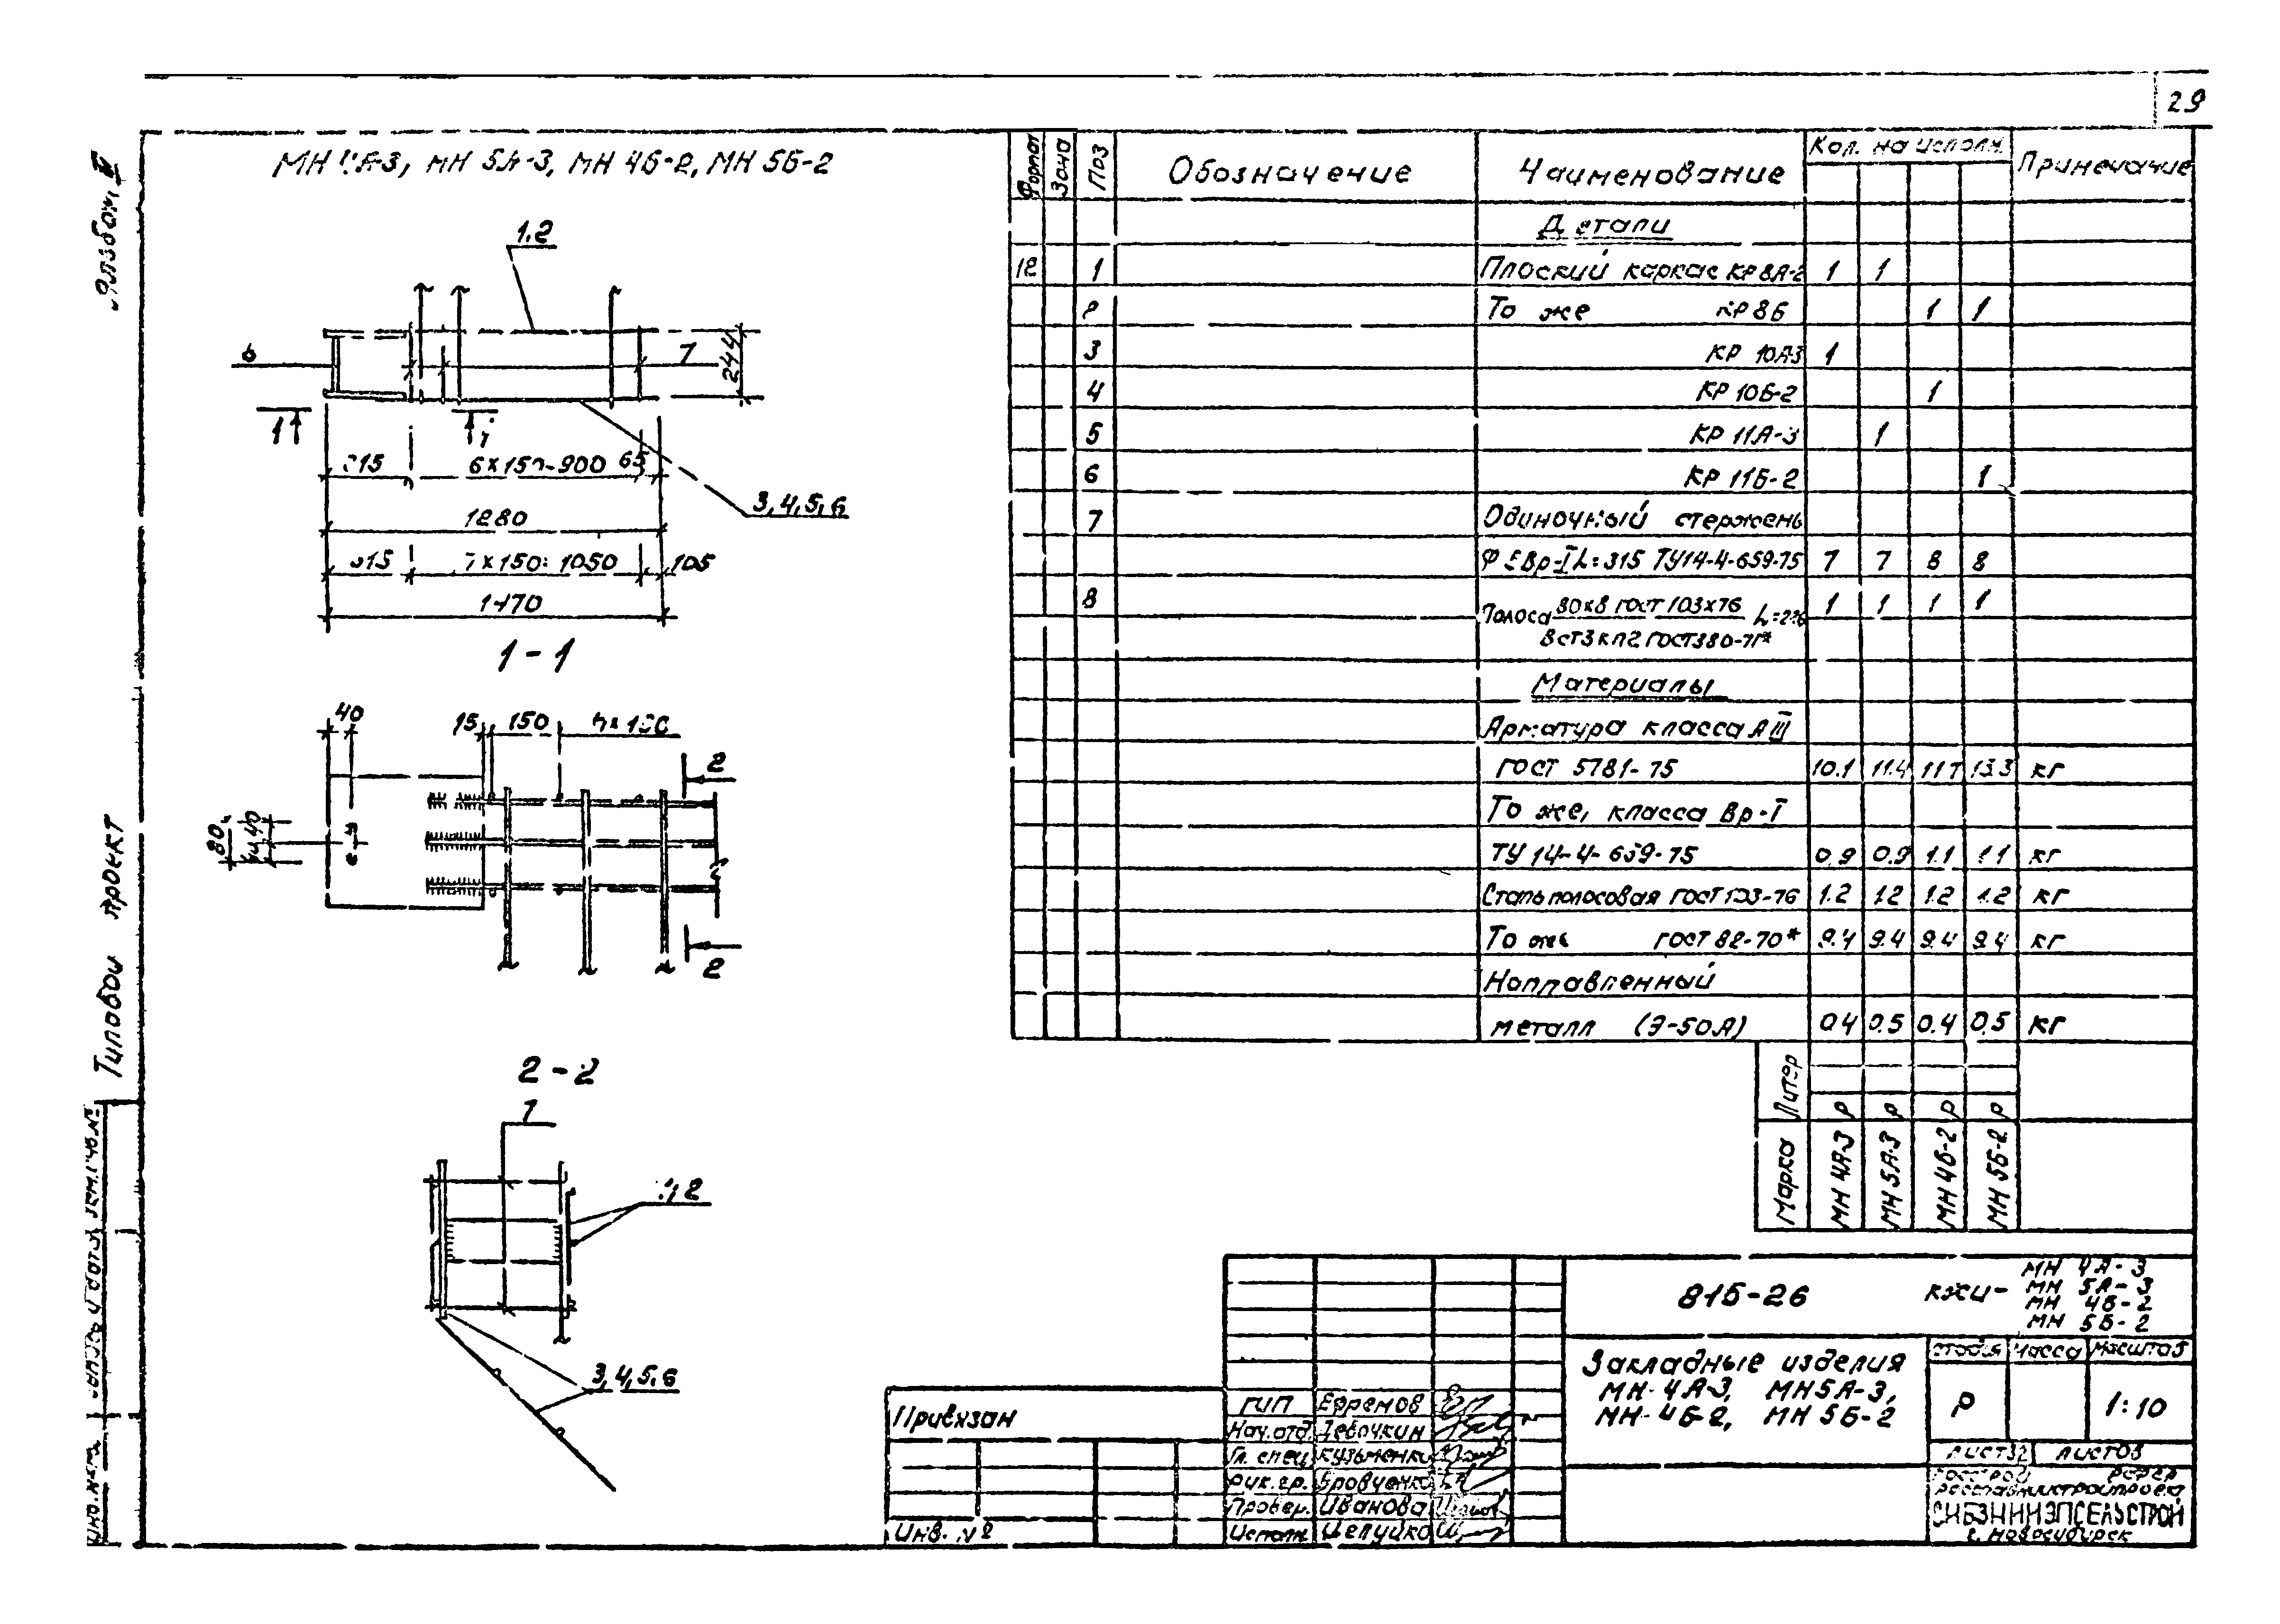 29
Альбом
Типовой проект
МН 4А-3, МН 5А-3, МН 4Б-2, МН 5Б-2
1.2
6
7
244
1 1
315 6х150=900 65
3,4,5,6
1280
315 7х150=1050 105
1470
1-1
40 15 150
2
80
40
2
2-2
7
1,2
3,4,5,6
Формат Зона Поз Обозначение Наименование Кол. на исполн. Примечание
Детали
12 1 Плоский каркас КР 8А-2 1 1
2 То же КР 8Б 1 1
3 КР 10А-3 1
4 КР 10Б-2 1
5 КР 11А-3 1
6 КР 11Б-2 1
7 Одиночный стержень
Ф 5 Вр-I L=315 ТУ14-4-659-75 7 7 8 8
8 Полоса 80х8 ГОСТ 103х76 1 1 1 1
ВСт3кп2 ГОСТ380-71*
Материалы
Арматура класса АIII
ГОСТ 5781-75 10.1 11.4 11.7 13.3 кг
То же, класса Вр-I
ТУ 14-4-659-75 0.9 0.9 1.1 1.1 кг
Сталь полосовая ГОСТ 103-76 1.2 1.2 1.2 1.2 кг
То же ГОСТ 82-70* 9.4 9.4 9.4 9.4 кг
Направленный
металл (Э-50А) 0.4 0.5 0.4 0.5 кг
Литер Р Р Р Р
Марка МН 4А-3 МН 5А-3 МН 4Б-2 МН 5Б-2
815-26 КЖИ-
МН 4А-3
МН 5А-3
МН 4Б-2
МН 5Б-2
Закладные изделия
МН 4А-3, МН5А-3,
МН 4Б-2, МН 5Б-2
Стадия Масса Масштаб
Р 1:10
Лист 32 Листов
Госстрой РСФСР
СИБЗНИИЭПСЕЛЬСТРОЙ
г. Новосибирск
ГИП Ефремов
Нач.отд. Девочкин
Гл. спец. Кузьменко
Рук.гр. Бровченко
Провер. Иванова
Исполн. Целуйко
Привязан
Инв. №
Инв.№подл. Подпись и дата Взам.инв.№